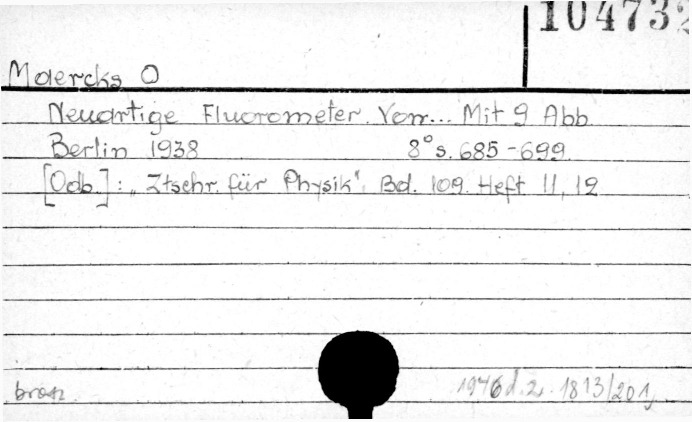 104732
Maercks O
Neuartige Fluorometer. Von... Mit 9 Abb.
Berlin 1938 8° s. 685-699
[Odb.]: "Ztschr. für Physik". Bd. 109. Heft 11, 12
brosz.
1976 d. 2. 1813/201